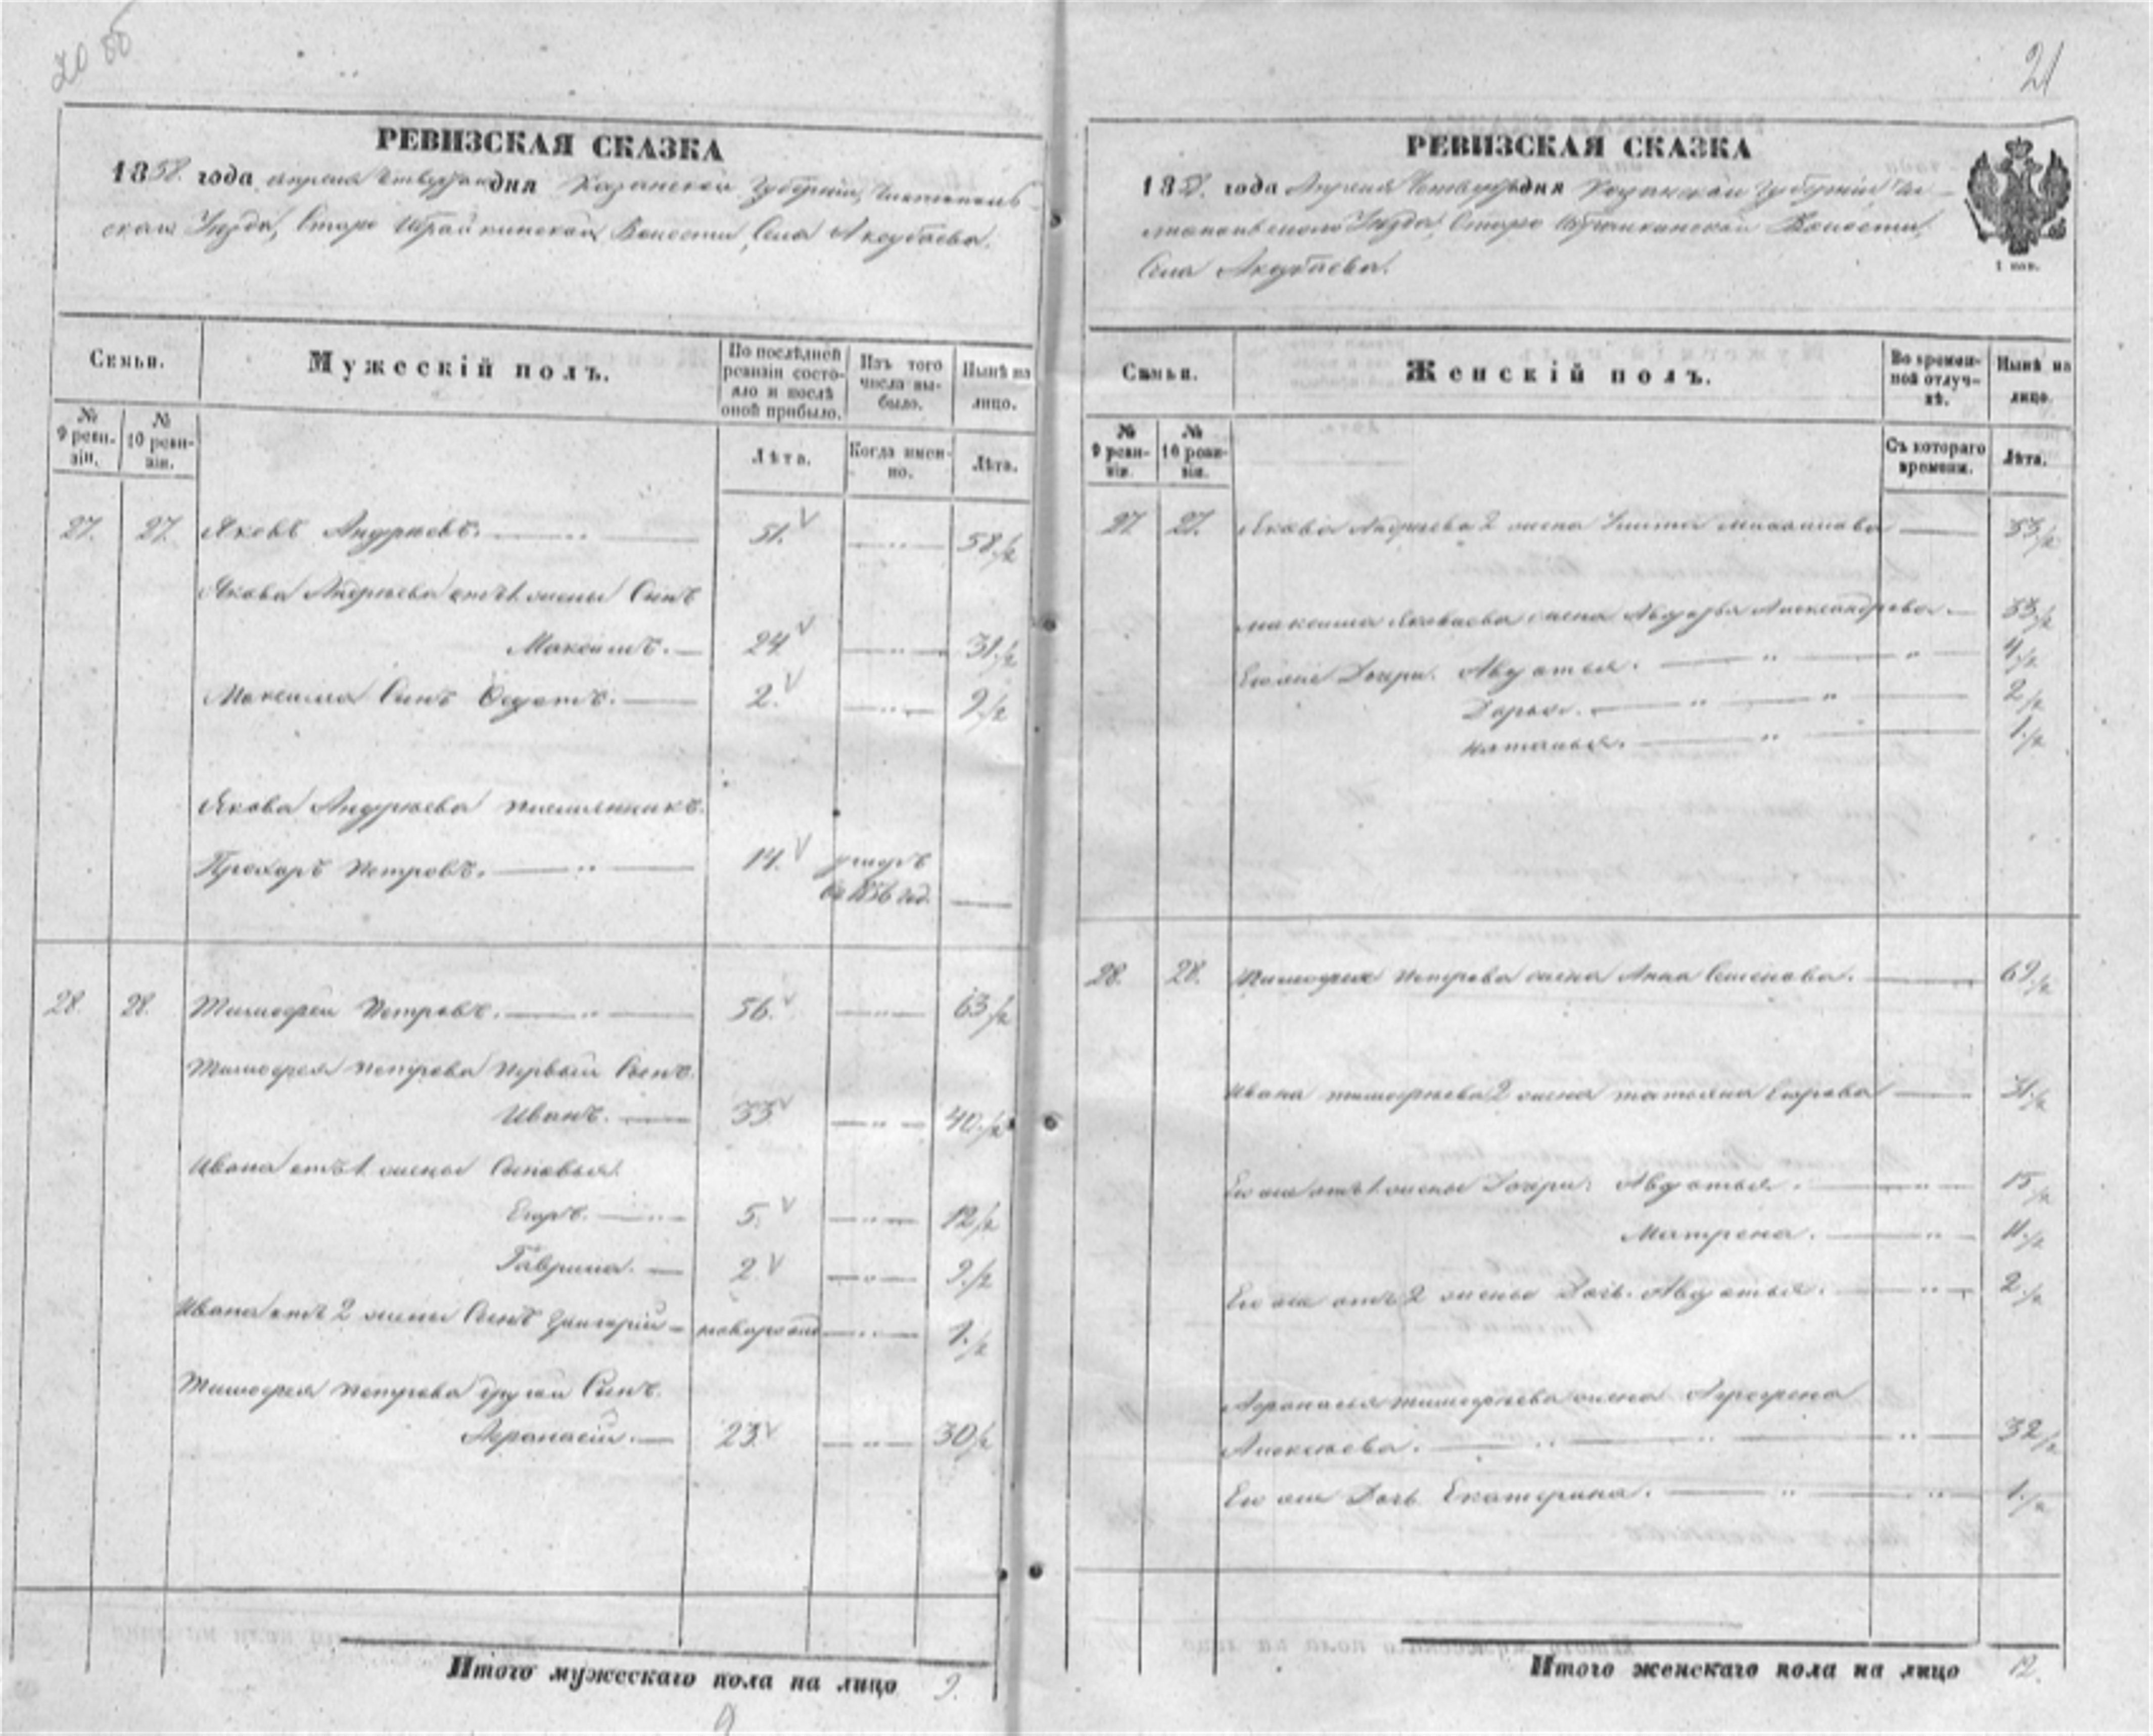 20 об
РЕВИЗСКАЯ СКАЗКА
1858 года апреля дня Казанской Губернии, Чистополь-
скаго Уезда, Старо Ибрайкинской Волости, Села Аксубаева.
Семьи.
Мужескій полъ.
По послѣдней ревизіи состояло и послѣ оной прибыло.
Изъ того числа выбыло.
Нынѣ на лицо.
№ 9 ревизіи.
№ 10 ревизіи.
Лѣта.
Когда именно.
Лѣта.
27. 27. Яковъ Андреевъ. 51. 58 1/2
Якова Андреева отъ 1 жены Сынъ
Максимъ. 24 31 1/2
Максима Сынъ Федотъ. 2. 9 1/2
Якова Андреева племянникъ
Прохаръ Петровъ. 14. умеръ
въ 1856 год.
28. 28. Тимофей Петровъ. 56. 63 1/2
Тимофея Петрова первый Сынъ
Иванъ. 33 40 1/2
Ивана отъ 1 жены Сыновья
Егоръ. 5. 12 1/2
Гаврила. 2. 9 1/2
Ивана отъ 2 жены Сынъ Григорій новорожд 1 1/2
Тимофея Петрова другой Сынъ
Афанасій. 23 30 1/2
Итого мужескаго пола на лицо 9.
9
21
РЕВИЗСКАЯ СКАЗКА
1858 года Апреля дня Казанской Губерніи Чи-
стопольскаго Уезда, Старо Ибрайкинской Волости,
Села Аксубаева.
1 коп.
Семьи.
Женскій полъ.
Во временной отлучкѣ.
Нынѣ на лицо.
№ 9 ревизіи.
№ 10 ревизіи.
Съ котораго времени.
Лѣта.
27. 27. Якова Андреева 2 жена 53 1/2
Максима Яковлева жена Авдотья Александрова. 33 1/2
Ево же Дочери. Авдотья. 4 1/2
Дарья. 2 1/2
Наталья. 1 1/2
28. 28. Тимофея Петрова жена Анна Семенова. 62 1/2
Ивана Тимофеева 2 жена Татьяна Егорова 31 1/2
Ево же отъ 1 жены Дочери: Авдотья. 15 1/2
Матрена. 11 1/2
Ево же отъ 2 жены Дочь. Авдотья. 2 1/2
Афанасья Тимофеева жена Аграфена
Алексеева. 32 1/2
Ево же Дочь Екатерина. 1 1/2
Итого женскаго пола на лицо 12.